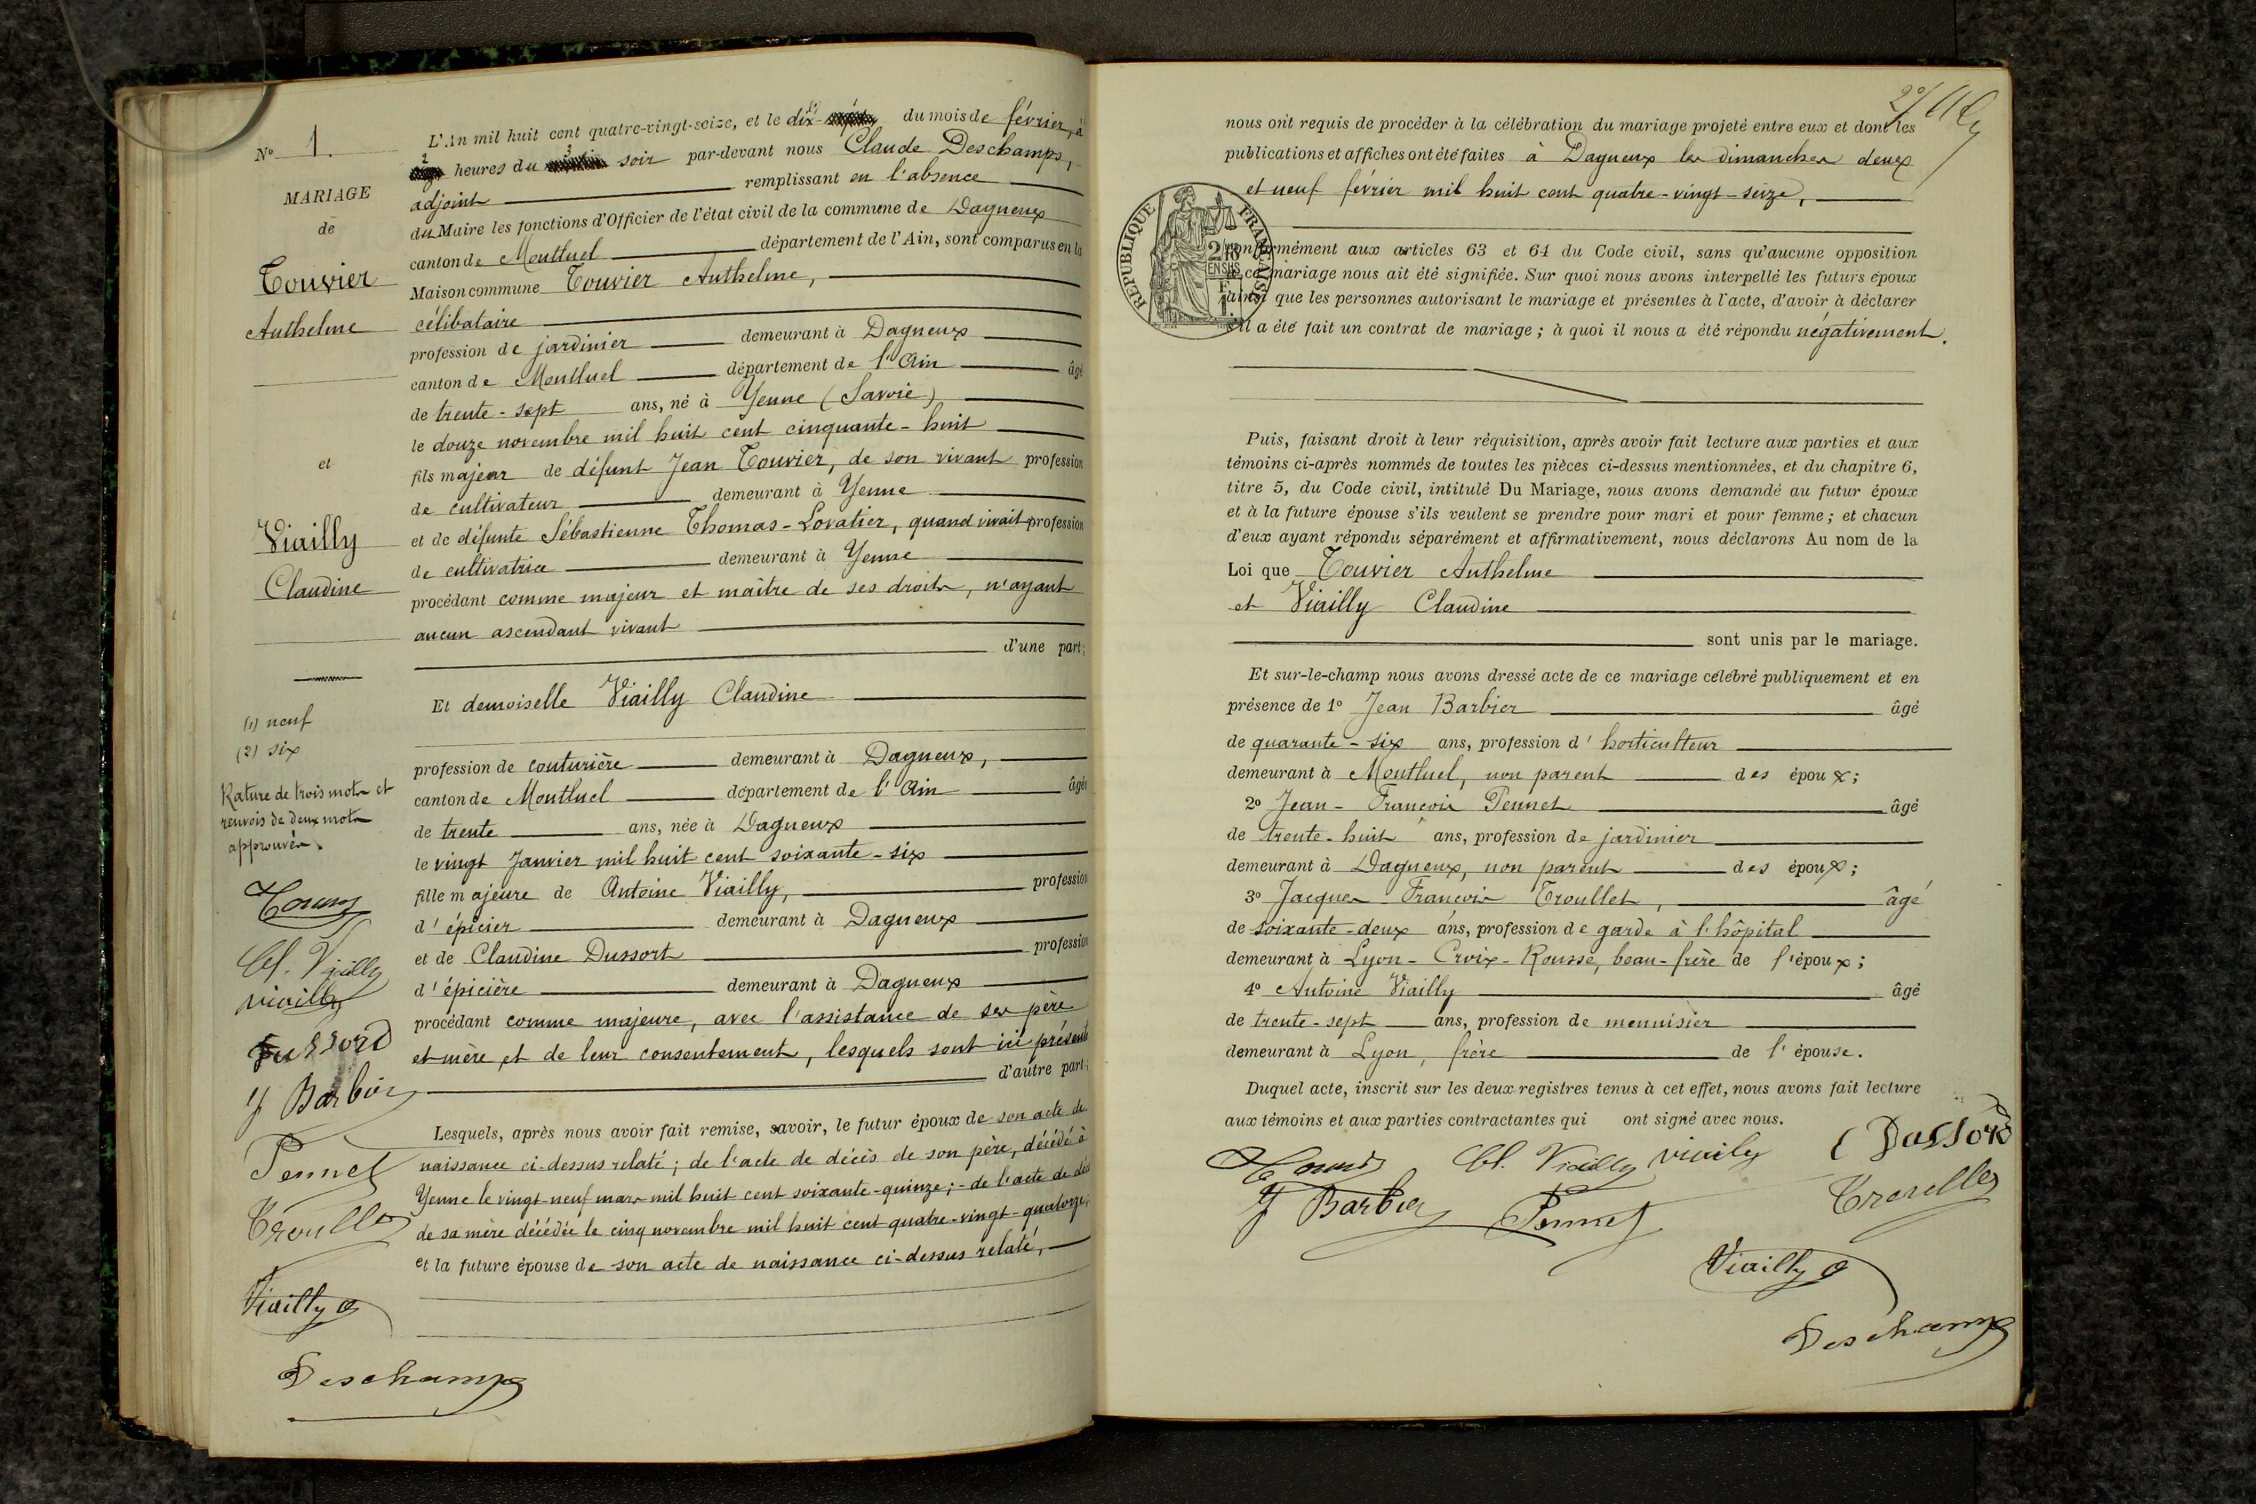 N° 1.
MARIAGE
de
Touvier
Anthelme
et
Viailly
Claudine
(1) neuf
(2) six
Rature de trois mots et
renvois de deux mots
approuvés.
Cl. Viailly
viailly
Dussord
J Barbier
Pennet
Viailly
Deschamps
L'An mil huit cent quatre-vingt-seize, et le dix- (1) du mois de février, à
2 heures du 3 soir par-devant nous Claude Deschamps,
adjoint remplissant en l'absence
du Maire les fonctions d'Officier de l'état civil de la commune de Dagneux
canton de Montluel département de l'Ain, sont comparus en la
Maison commune Touvier Anthelme,
célibataire
profession de jardinier demeurant à Dagneux
canton de Montluel département de l'Ain âgé
de trente-sept ans, né à Yenne (Savoie)
le douze novembre mil huit cent cinquante-huit
fils majeur de défunt Jean Touvier, de son vivant profession
de cultivateur demeurant à Yenne
et de défunte Sébastienne Thomas-Lovatier, quand vivait profession
de cultivatrice demeurant à Yenne
procédant comme majeur et maître de ses droits, n'ayant
aucun ascendant vivant
d'une part;
Et demoiselle Viailly Claudine
profession de couturière demeurant à Dagneux,
canton de Montluel département de l'Ain âgée
de trente ans, née à Dagneux
le vingt Janvier mil huit cent soixante-six
fille majeure de Antoine Viailly, profession
d'épicier demeurant à Dagneux
et de Claudine Dussort profession
d'épicière demeurant à Dagneux
procédant comme majeure, avec l'assistance de ses père
et mère et de leur consentement, lesquels sont ici présents
d'autre part;
Lesquels, après nous avoir fait remise, savoir, le futur époux de son acte de
naissance ci-dessus relaté; de l'acte de décès de son père, décédé à
Yenne le vingt-neuf mars mil huit cent soixante-quinze;- de l'acte de décès
de sa mère décédée le cinq novembre mil huit cent quatre-vingt-quatorze;
et la future épouse de son acte de naissance ci-dessus relaté,
nous ont requis de procéder à la célébration du mariage projeté entre eux et dont les
publications et affiches ont été faites à Dagneux les dimanches deux
et neuf février mil huit cent quatre-vingt-seize,
RÉPUBLIQUE FRANÇAISE
conformément aux articles 63 et 64 du Code civil, sans qu'aucune opposition
à ce mariage nous ait été signifiée. Sur quoi nous avons interpellé les futurs époux
ainsi que les personnes autorisant le mariage et présentes à l'acte, d'avoir à déclarer
s'il a été fait un contrat de mariage; à quoi il nous a été répondu négativement.
Puis, faisant droit à leur réquisition, après avoir fait lecture aux parties et aux
témoins ci-après nommés de toutes les pièces ci-dessus mentionnées, et du chapitre 6,
titre 5, du Code civil, intitulé Du Mariage, nous avons demandé au futur époux
et à la future épouse s'ils veulent se prendre pour mari et pour femme; et chacun
d'eux ayant répondu séparément et affirmativement, nous déclarons Au nom de la
Loi que Touvier Anthelme
et Viailly Claudine
sont unis par le mariage.
Et sur-le-champ nous avons dressé acte de ce mariage célébré publiquement et en
présence de 1° Jean Barbier âgé
de quarante-six ans, profession d'horticulteur
demeurant à Montluel, non parent des époux;
2° Jean-François Pennet âgé
de trente-huit ans, profession de jardinier
demeurant à Dagneux, non parent des époux;
3° Jacques François Troullet, âgé
de soixante-deux ans, profession de garde à l'hôpital
demeurant à Lyon-Croix-Rousse, beau-frère de l'époux;
4° Antoine Viailly âgé
de trente-sept ans, profession de menuisier
demeurant à Lyon, frère de l'épouse.
Duquel acte, inscrit sur les deux registres tenus à cet effet, nous avons fait lecture
aux témoins et aux parties contractantes qui ont signé avec nous.
Cl. Viailly viaily C Dussord
J Barbier Pennet
Viailly
Deschamps